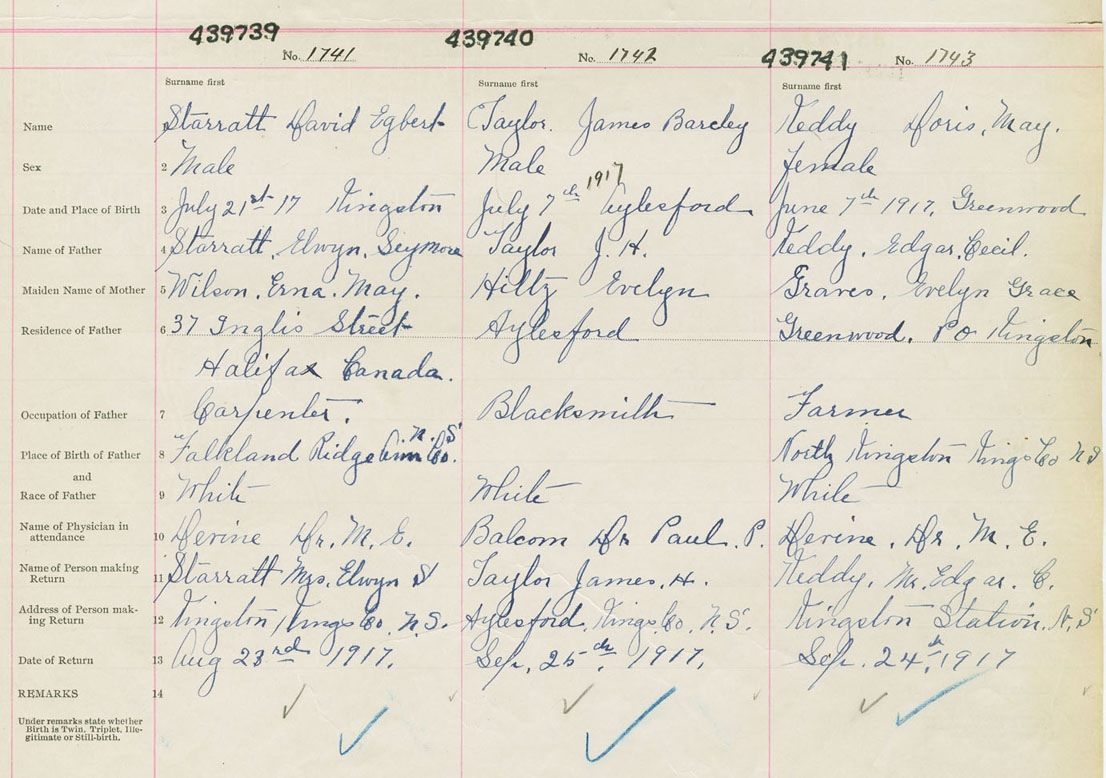 439739 439740 439741
No. 1741 No. 1742 No. 1743
Surname first Surname first Surname first
Name Starratt David Egbert Taylor. James Barcley Keddy Doris, May.
Sex 2 Male Male female
1917
Date and Place of Birth 3 July 21st 17 Kingston July 7th Aylesford June 7th 1917, Greenwood
Name of Father 4 Starratt, Elwyn, Seymore Taylor J. H. Keddy, Edgar, Cecil.
Maiden Name of Mother 5 Wilson. Erna. May. Hiltz Evelyn Graves, Evelyn Grace
Residence of Father 6 37 Inglis Street Aylesford Greenwood. PO Kingston
Halifax Canada.
Occupation of Father 7 Carpenter. Blacksmith Farmer
N. S
Place of Birth of Father 8 Falkland Ridge Ann Co. North Kingston Kings Co N S
and
Race of Father 9 White White White
Name of Physician in
attendance 10 Devine Dr. M. E. Balcom Dr Paul. P. Devine. Dr. M. E.
Name of Person making
Return 11 Starratt Mrs. Elwyn S Taylor James. H. Keddy, Mr. Edgar. C.
Address of Person mak-
ing Return 12 Kingston, Kings Co, N.S. Aylesford, Kings, Co, N.S. Kingston Station. N, S
Date of Return 13 Aug 23rd 1917. Sep, 25th, 1917, Sep. 24th, 1917
REMARKS 14
Under remarks state whether
Birth is Twin, Triplet, Ille-
gitimate or Still-birth.